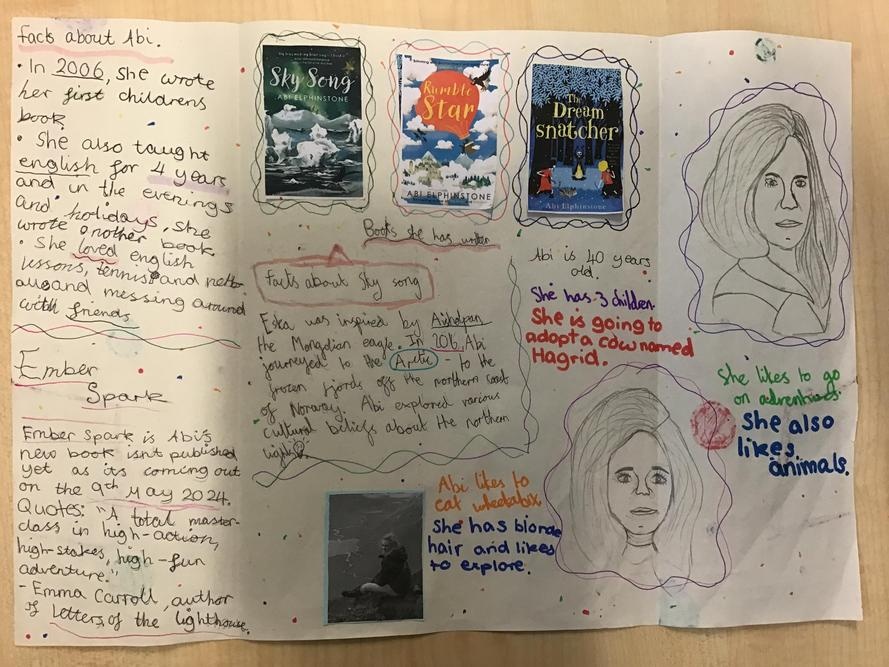 Facts about Abi.
• In 2006, she wrote
her first childrens
book.
• She also taught
english for 4 years
and in the evenings
and holidays, she
wrote another book.
• She loved english
lessons, tennis and net-
and messing around
with friends
Ember
Spark
Ember Spark is Abi's
new book isn't published
yet as its coming out
on the 9th May 2024.
Quotes: "A total master-
class in high-action,
high-stakes, high-fun
adventure."
- Emma Carroll, author
of Letters of the lighthouse.
Sky Song
ABI ELPHINSTONE
Rumble
Star
ABI ELPHINSTONE
The
Dream
snatcher
Abi Elphinstone
Books she has written
Facts about Sky song
Eska was inspired by
the Mongolian eagle. In 2016, Abi
journeyed to the Arctic - to the
frozen fjords off the northern coast
of Norway. Abi explored various
cultural beliefs about the northern
lights.
Abi is 40 years
old.
She has 3 children.
She is going to
adopt a cow named
Hagrid.
She likes to go
on adventures.
She also
likes
animals.
Abi likes to
eat wheetabix
She has blonde
hair and likes
to explore.